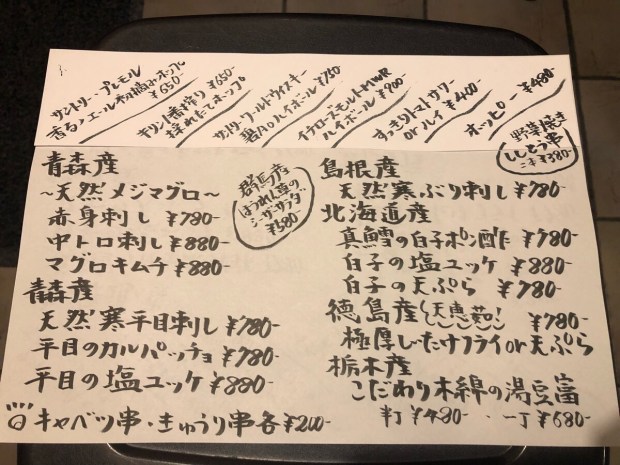 サントリー・プレモル
香るエール初摘みホップ
¥650
キリン一番搾り ¥650-
採れたてホップ
サントリーワールドウイスキー
碧Aoハイボール ¥750
イチローズモルトMWR
ハイボール ¥900-
すっきりトマトサワー
orハイ ¥400
ホッピー ¥480-
野菜焼き
ししとう串
¥380-
青森産
〜天然メジマグロ〜
赤身刺し ¥780-
中トロ刺し ¥880-
マグロキムチ ¥880-
群馬産
ほうれん草の
シーザーサラダ
¥580-
青森産
天然寒平目刺し ¥780-
平目のカルパッチョ ¥780-
平目の塩ユッケ ¥880-
キャベツ串・きゅうり串各¥200-
島根産
天然寒ぶり刺し ¥780-
北海道産
真鱈の白子ポン酢 ¥780-
白子の塩ユッケ ¥880-
白子の天ぷら ¥780-
徳島産 天恵菇! ¥780-
極厚しいたけフライor天ぷら
栃木産
こだわり木綿の湯豆富
半丁 ¥480- 一丁 ¥680-